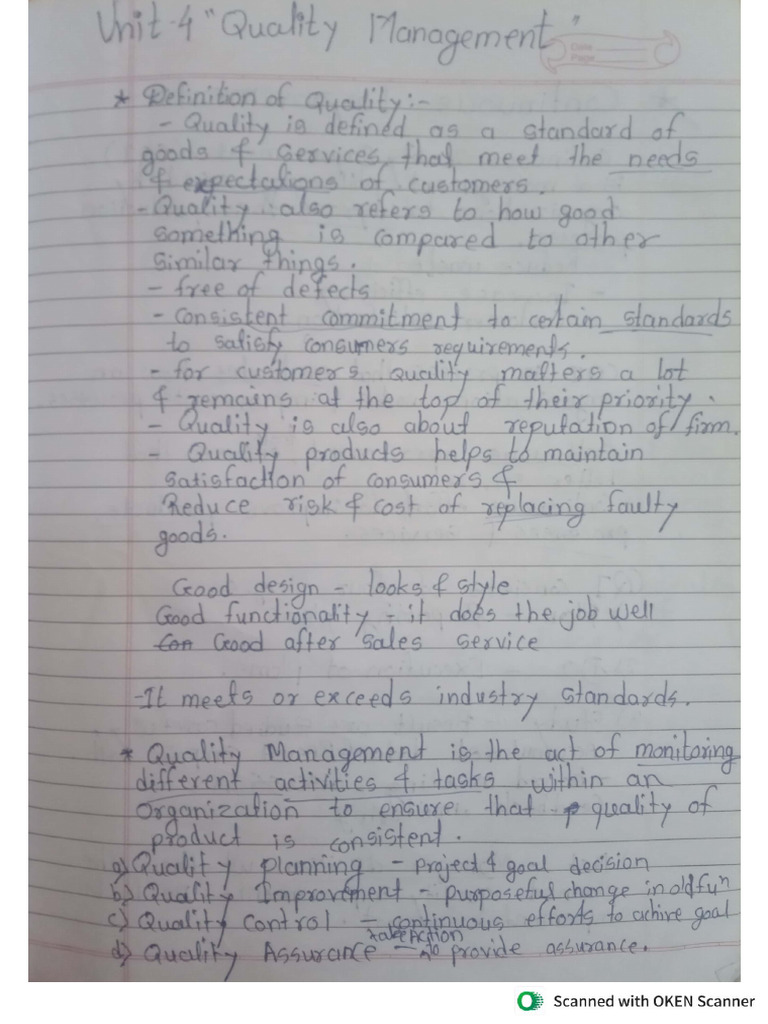 Unit-4 "Quality Management"
Date
Page
* Definition of Quality:-
- Quality is defined as a standard of
goods & services that meet the needs
& expectations of customers.
- Quality also refers to how good
something is compared to other
similar things.
- free of defects
- consistent commitment to certain standards
to satisfy consumers requirements.
- for customers quality matters a lot
& remains at the top of their priority.
- Quality is also about reputation of firm.
- Quality products helps to maintain
satisfaction of consumers &
Reduce risk & cost of replacing faulty
goods.
Good design - looks & style
Good functionality - it does the job well
Good after sales service
-It meets or exceeds industry standards.
* Quality Management is the act of monitoring
different activities & tasks within an
organization to ensure that quality of
product is consistent.
a) Quality planning - project & goal decision
b) Quality Improvement - purposeful change in old fun
c) Quality Control - continuous efforts to achive goal
d) Quality Assurance - take Action to provide assurance.
Scanned with OKEN Scanner